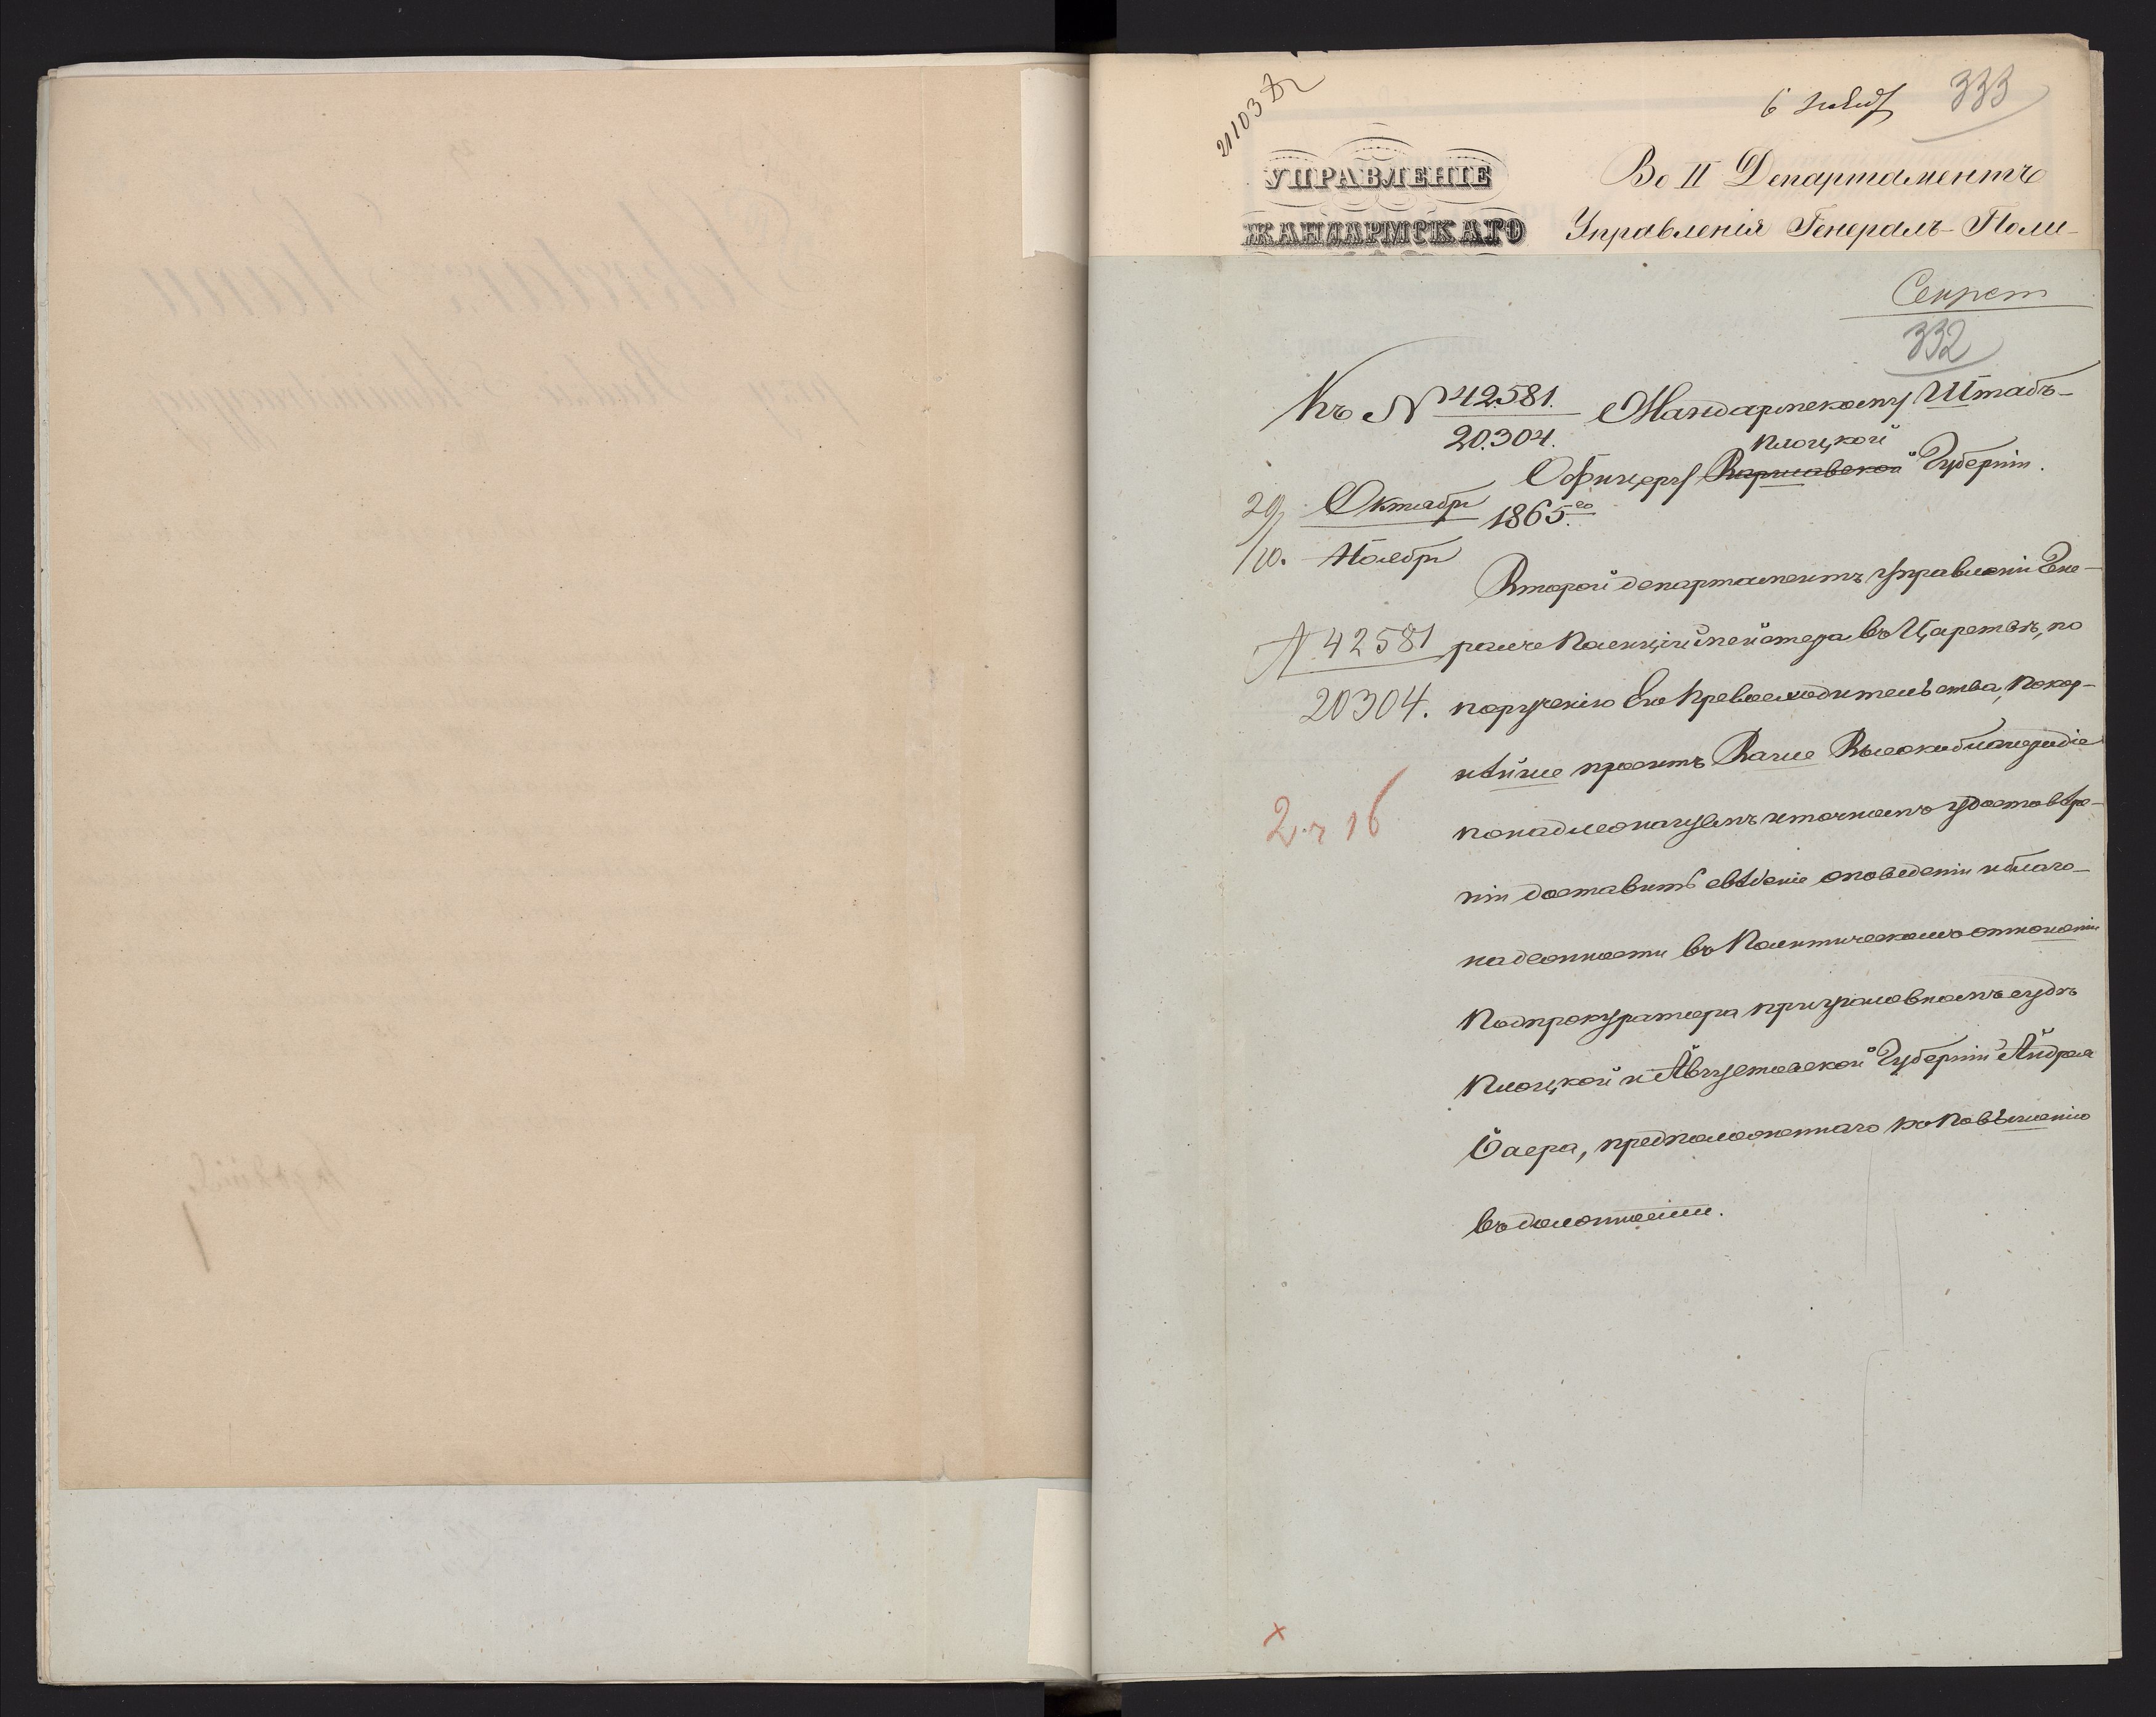 21103
6
333
УПРАВЛЕНІЕ
ЖАНДАРМСКАГО
Во II Департаментъ
Управленія Генералъ-Поли-
Секрет
332
Къ № 42581.
20.304.
Жандармскому Штабъ-
Плоцкой
Офицеру Варшавской Губерніи.
29/10. Октября
Ноября
1865го
Второй департаментъ Управленія Гене-
№ 42581
20304.
ралъ Полиціймейстера въ Царствѣ, по
порученію Его Превосходительства, покор-
нѣйше проситъ Ваше Высокоблагородіе
2 16
по надлежащемъ и точномъ удостовѣре-
ніи доставить свѣдѣніе о поведеніи и благо-
надежности въ Политическомъ отношеніи
Подпрокуратора при уголовномъ судѣ
Плоцкой и Августовской Губерніи Андрея
Баера, предположеннаго къ повышенію
въ должности.
х